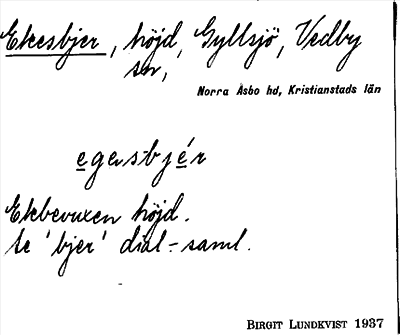 Ekesbjer, höjd, Gyllsjö, Vedby
sn,
Norra Åsbo hd, Kristianstads län
egəsbjér
Ekbevuxen höjd.
se 'bjer' dial-saml.
BIRGIT LUNDKVIST 1937